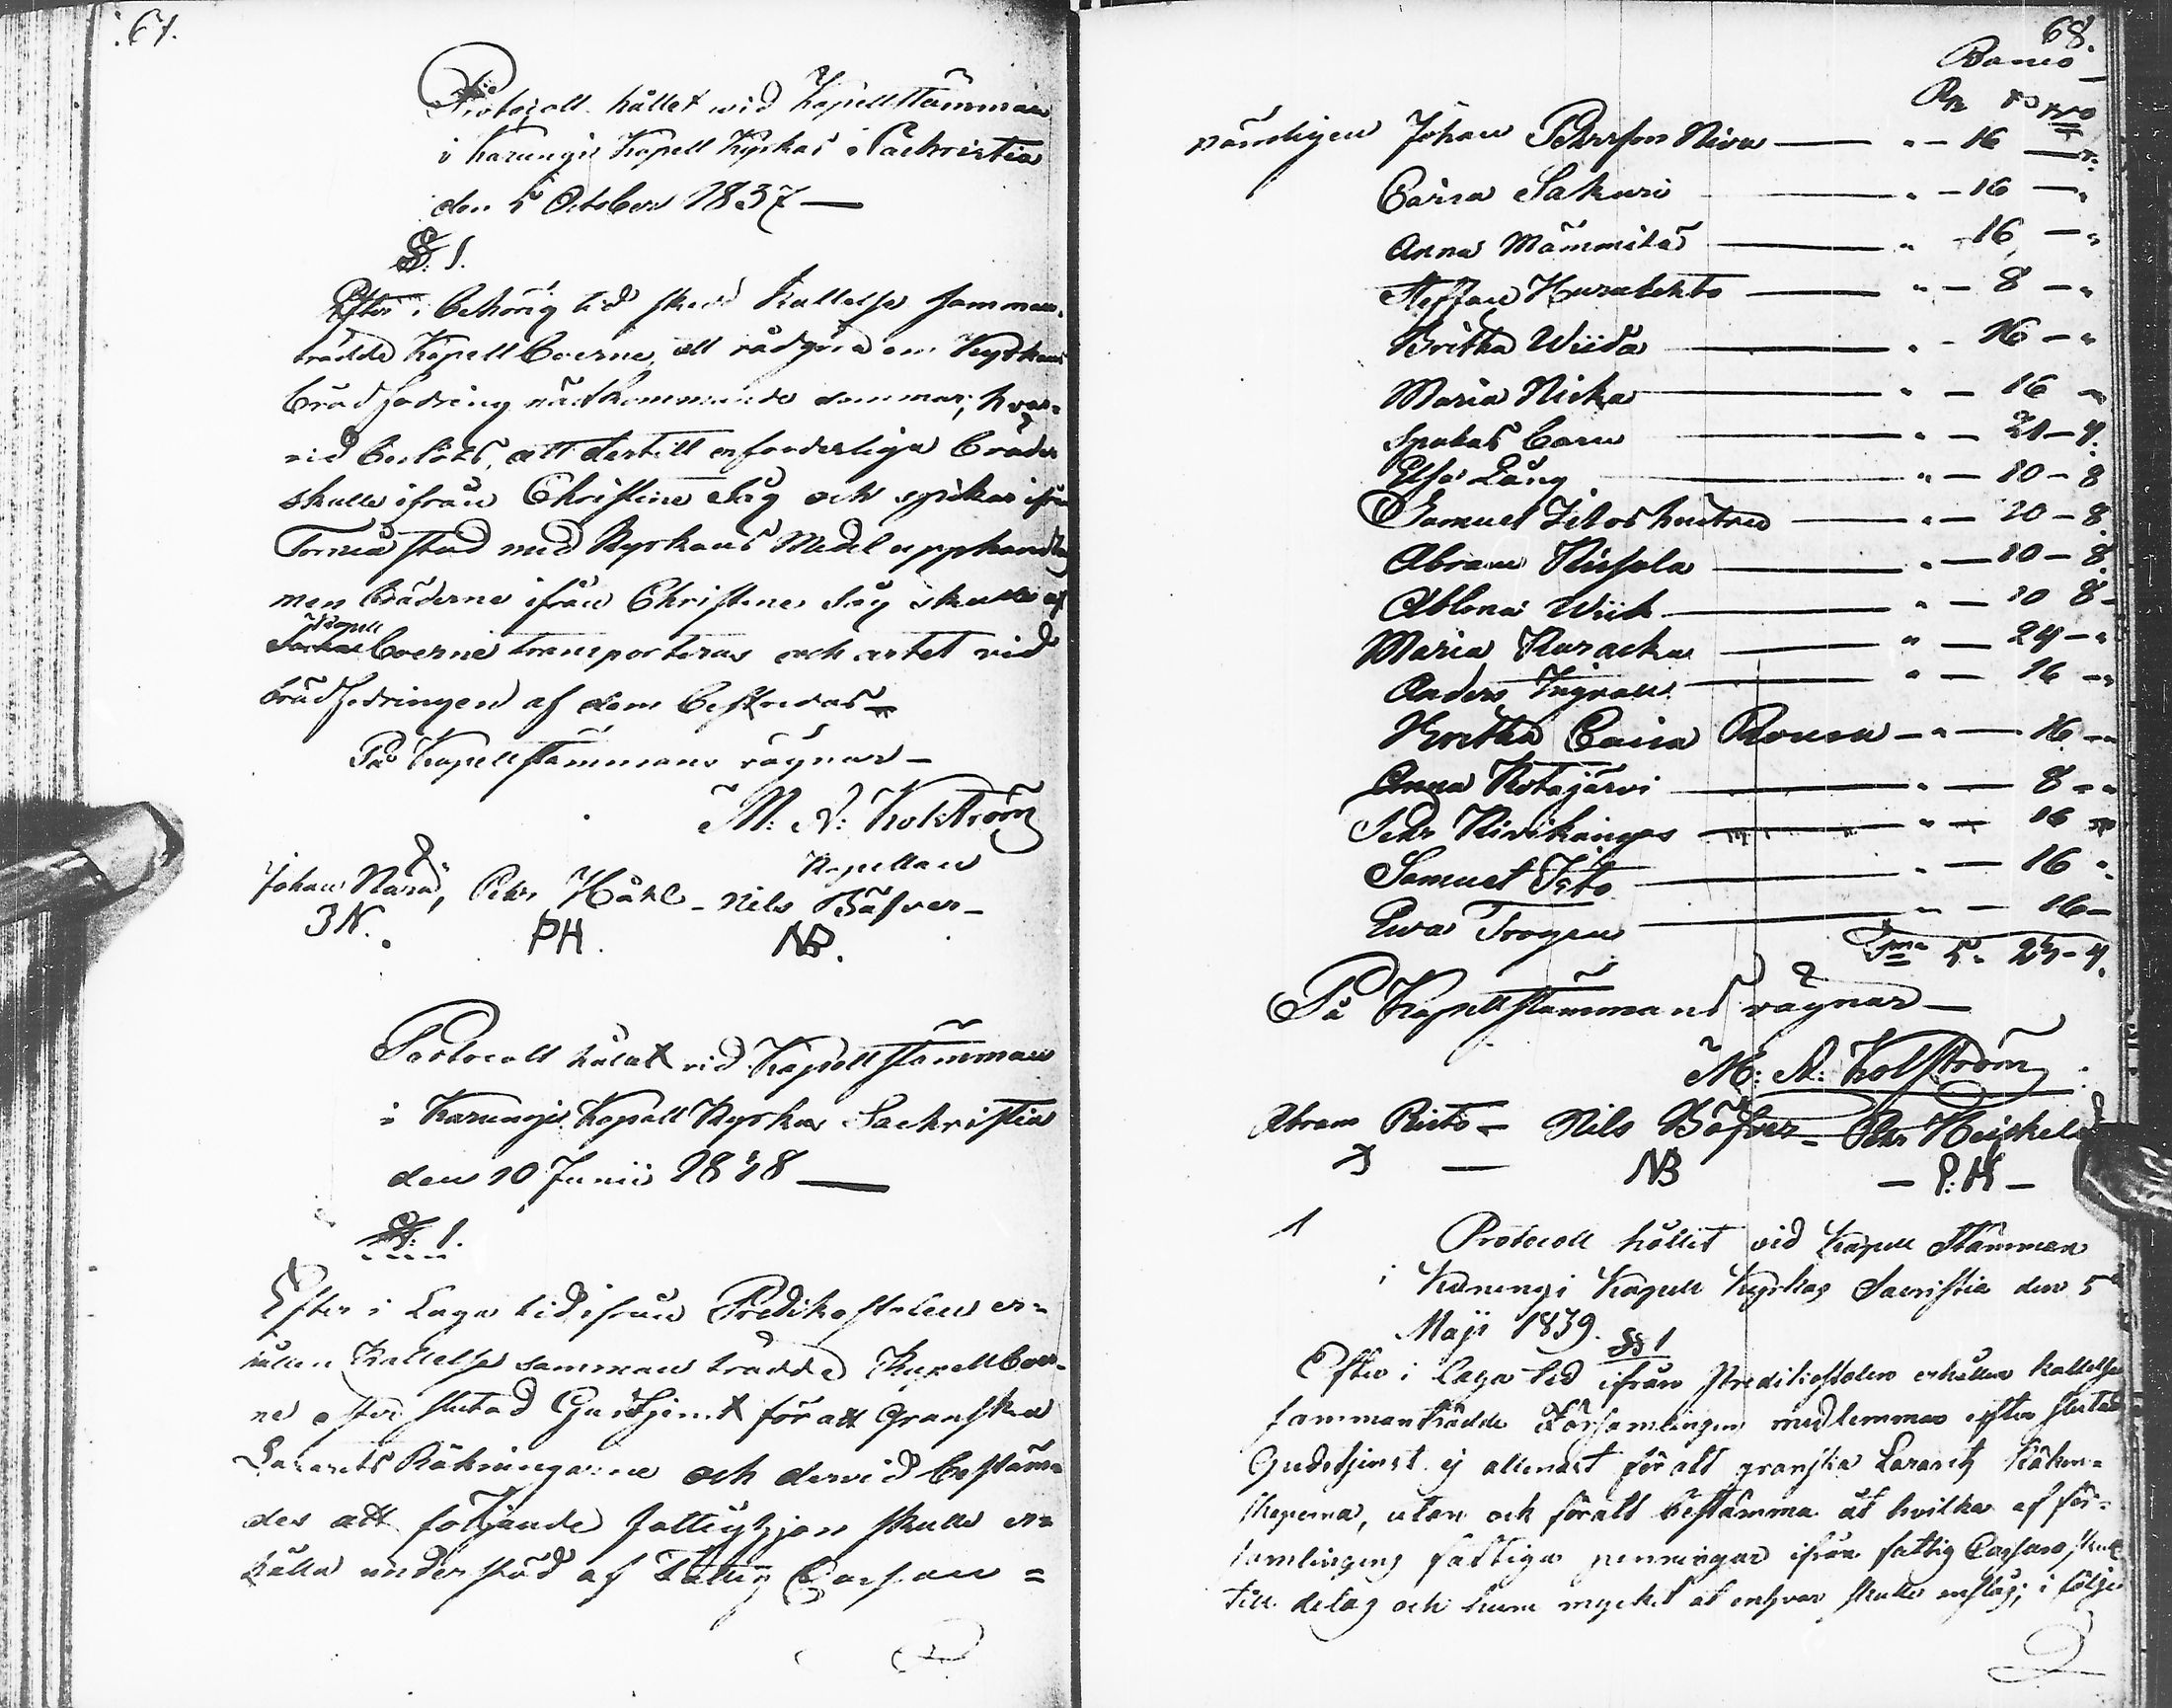 67.
Protocoll hållet wid Kapellstämman
i Karungi Kapell Kyrkas Sachristia
den 5 October 1837 —
§. 1.
Efter i behörig tid skedd Kallelse samman-
trädde Kapellboerne att rådgöra om Kyrkans
brädfodring nästkommande sommar, hvar-
vid beslöts, att dertill erforderliga bräder
skulle ifrån Christine Såg och spikar ifrån
Torneå stad med Kyrkans Medel upphandlas
men Bräderne ifrån Christine Såg skulle af
Kapell
boerne transporteras och arbetet vid
brädfodringen af dem bestridas
På Kapellstämmans vägnar —
M: A: Kolström
Kapellan
Johan Nara, Pehr Håhl - Nils Bäfver —
JN. PH. NB.
Protocoll hållet vid Kapellstämman
i Karungi Kapell Kyrkas Sachristia
den 10 Junii 1838 —
§. 1.
Efter i Laga tid ifrån Predikostolen er-
hållen Kallelse samman trädde Kapellboer-
ne efter slutad Gudstjenst för att Granska
Lazarets Räkningarne och dervid bestäm-
des att följande fattighjon skulle er-
hålla understöd af Fattig Cassan =
68.
Banco
Rd s rst
nämligen Johan Pehrsson Niva — " — 16 — "
Caisa Sakuri — " — 16 — "
Anna Mämmilä — " — 16 — "
Steffan — " — 8 — "
Britha Wiida — " — 16 — "
Maria Niska — " — 16 — "
Spakas barn — " — 21 — 4.
Elsa Lång — " — 10 — 8
Samuel hustru — " — 10 — 8
Abram — " — 10 — 8.
Wiik — " — 10 8 —
Maria — " — 24 — "
Anders — " — 16 — "
Britha Caisa Rousu — " — 16 — "
Anna Kotajärvi — " — 8 — "
Pehr Kivikangas — " — 16 "
Samuel — " — 16 "
Ewa — " — 16 —
Sma 5. 25 - 4.
På Kapellstämmans vägnar —
M: A: Kolström
Abram — Nils Bäfver — Pehr Heiskel
— NB — P: H —
1 Protocoll hållit vid Kapell Stämman
i Karungi Kapell Kyrkas Sacristia den 5
Maji 1839. § 1
Efter i laga tid ifrån Predikostolen erhållen kallelse
sammanträdde Församlingens medlemmar efter slutad
Gudstjenst ej allenast för att granska Lazarets Räken-
skaperna, utan och för att bestämma åt hvilka af för-
samlingens fattiga penningar ifrån fattig Cassan skulle
till delas och huru mycket åt enhvar skulle anslås; i följe